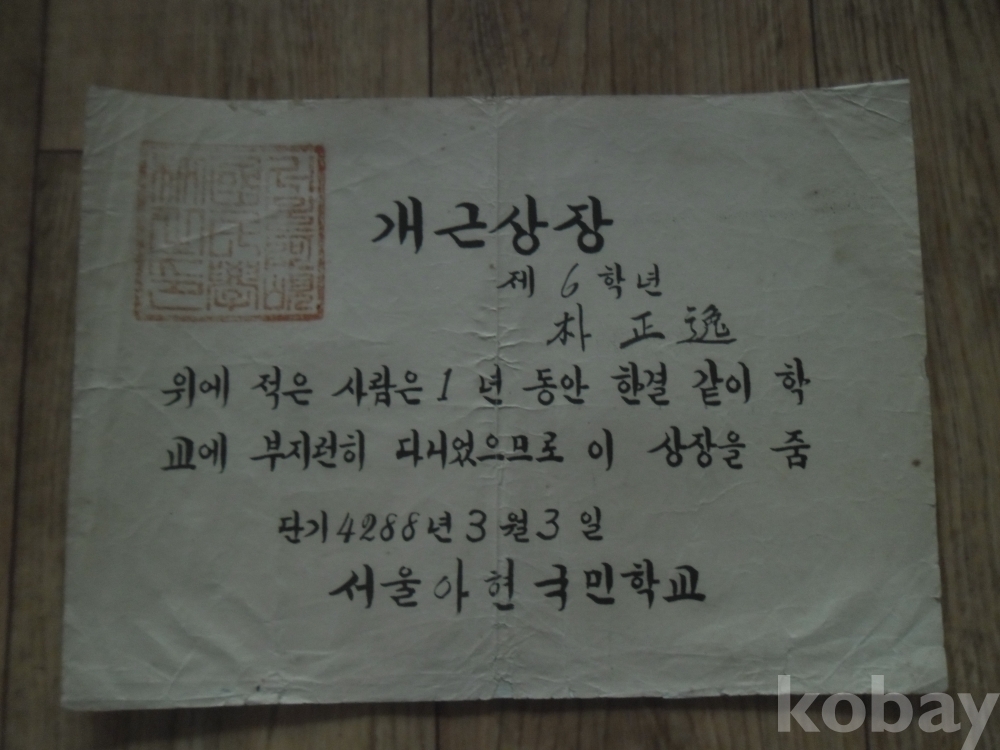 개근상장
제 6 학년
朴 正 逸
위에 적은 사람은 1 년 동안 한결 같이 학
교에 부지런히 다니었으므로 이 상장을 줌
단기 4288년 3 월 3 일
서울아현국민학교
kobay